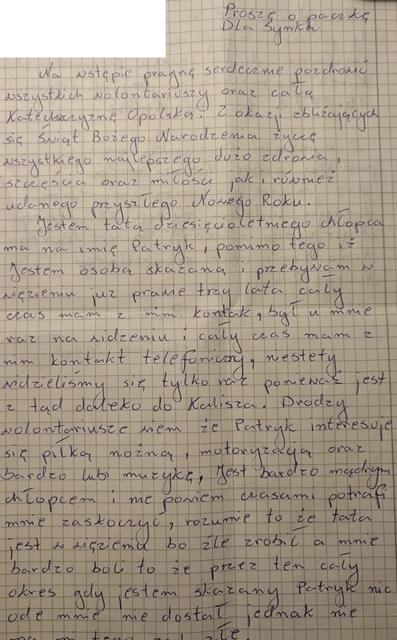 Proszę o paczkę
Dla Synka
Na wstępie pragnę serdecznie pozdrowić
wszystkich wolontariuszy oraz całą
Katedrę Opolską. Z okazji zbliżających
się Świąt Bożego Narodzenia życzę
wszystkiego najlepszego dużo zdrowia,
szczęścia oraz miłości jak i również
udanego przyszłego Nowego Roku.
Jestem tatą dziesięcioletniego chłopca
ma na imię Patryk, pomimo tego iż
Jestem osobą skazaną i przebywam w
więzieniu już prawie trzy lata cały
czas mam z nim kontakt, był u mnie
raz na widzeniu i cały czas mam z
nim kontakt telefoniczny, niestety
widzieliśmy się tylko raz ponieważ jest
z tąd daleko do Kalisza. Drodzy
wolontariusze wiem że Patryk interesuje
się piłką nożną, motoryzacją oraz
bardzo lubi muzykę, Jest bardzo mądrym
chłopcem i nie powiem czasami potrafi
mnie zaskoczyć, rozumie to że tata
jest w więzieniu bo źle zrobił a mnie
bardzo boli to że przez ten cały
okres gdy jestem skazany Patryk nic
ode mnie nie dostał jednak nie
tego źle.